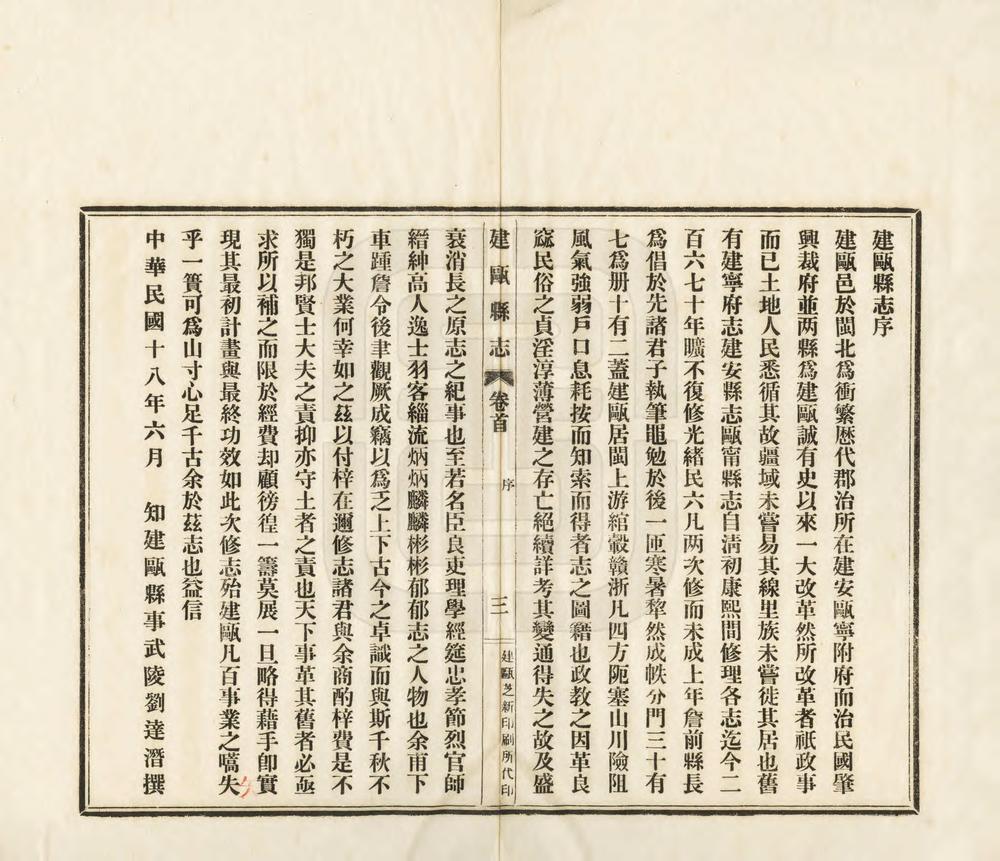 建甌縣志序
建甌邑於閩北爲衝繁歷代郡治所在建安甌寧附府而治民國肇
興裁府並两縣爲建甌誠有史以來一大改革然所改革者祇政事
而已土地人民悉循其故疆域未嘗易其線里族未嘗徙其居也舊
有建寧府志建安縣志甌甯縣志自淸初康熙間修理各志迄今二
百六七十年曠不復修光緒民六凡两次修而未成上年詹前縣長
爲倡於先諸君子執筆黽勉於後一匝寒暑犂然成帙分門三十有
七爲册十有二蓋建甌居閩上游綰轂贛浙凡四方阨塞山川險阻
風氣強弱戶口息耗按而知索而得者志之圖籍也政教之因革良
窳民俗之貞淫淳薄營建之存亡絕續詳考其變通得失之故及盛
建甌縣志 卷首 序 三 建甌芝新印刷所代印
衰消長之原志之紀事也至若名臣良吏理學經筵忠孝節烈官師
縉紳高人逸士羽客緇流炳炳麟麟彬彬郁郁志之人物也余甫下
車踵詹令後聿觀厥成竊以爲乏上下古今之卓識而與斯千秋不
朽之大業何幸如之茲以付梓在邇修志諸君與余商酌梓費是不
獨是邦賢士大夫之責抑亦守土者之責也天下事革其舊者必亟
求所以補之而限於經費却顧徬徨一籌莫展一旦略得藉手卽實
現其最初計畫與最終功效如此次修志殆建甌凡百事業之嚆矢
乎一簣可爲山寸心足千古余於茲志也益信
中華民國十八年六月 知建甌縣事武陵劉達潛撰